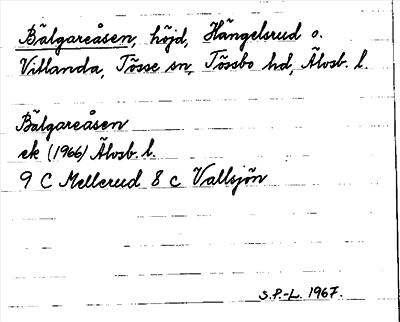 Bälgareåsen, höjd, Hängelsrud o.
Vitlanda, Tösse sn, Tössbo hd, Älvsb. l.
Bälgareåsen
ek (1966) Älvsb. l.
9 C Mellerud 8 c Vallsjön
S.P.-L. 1967.